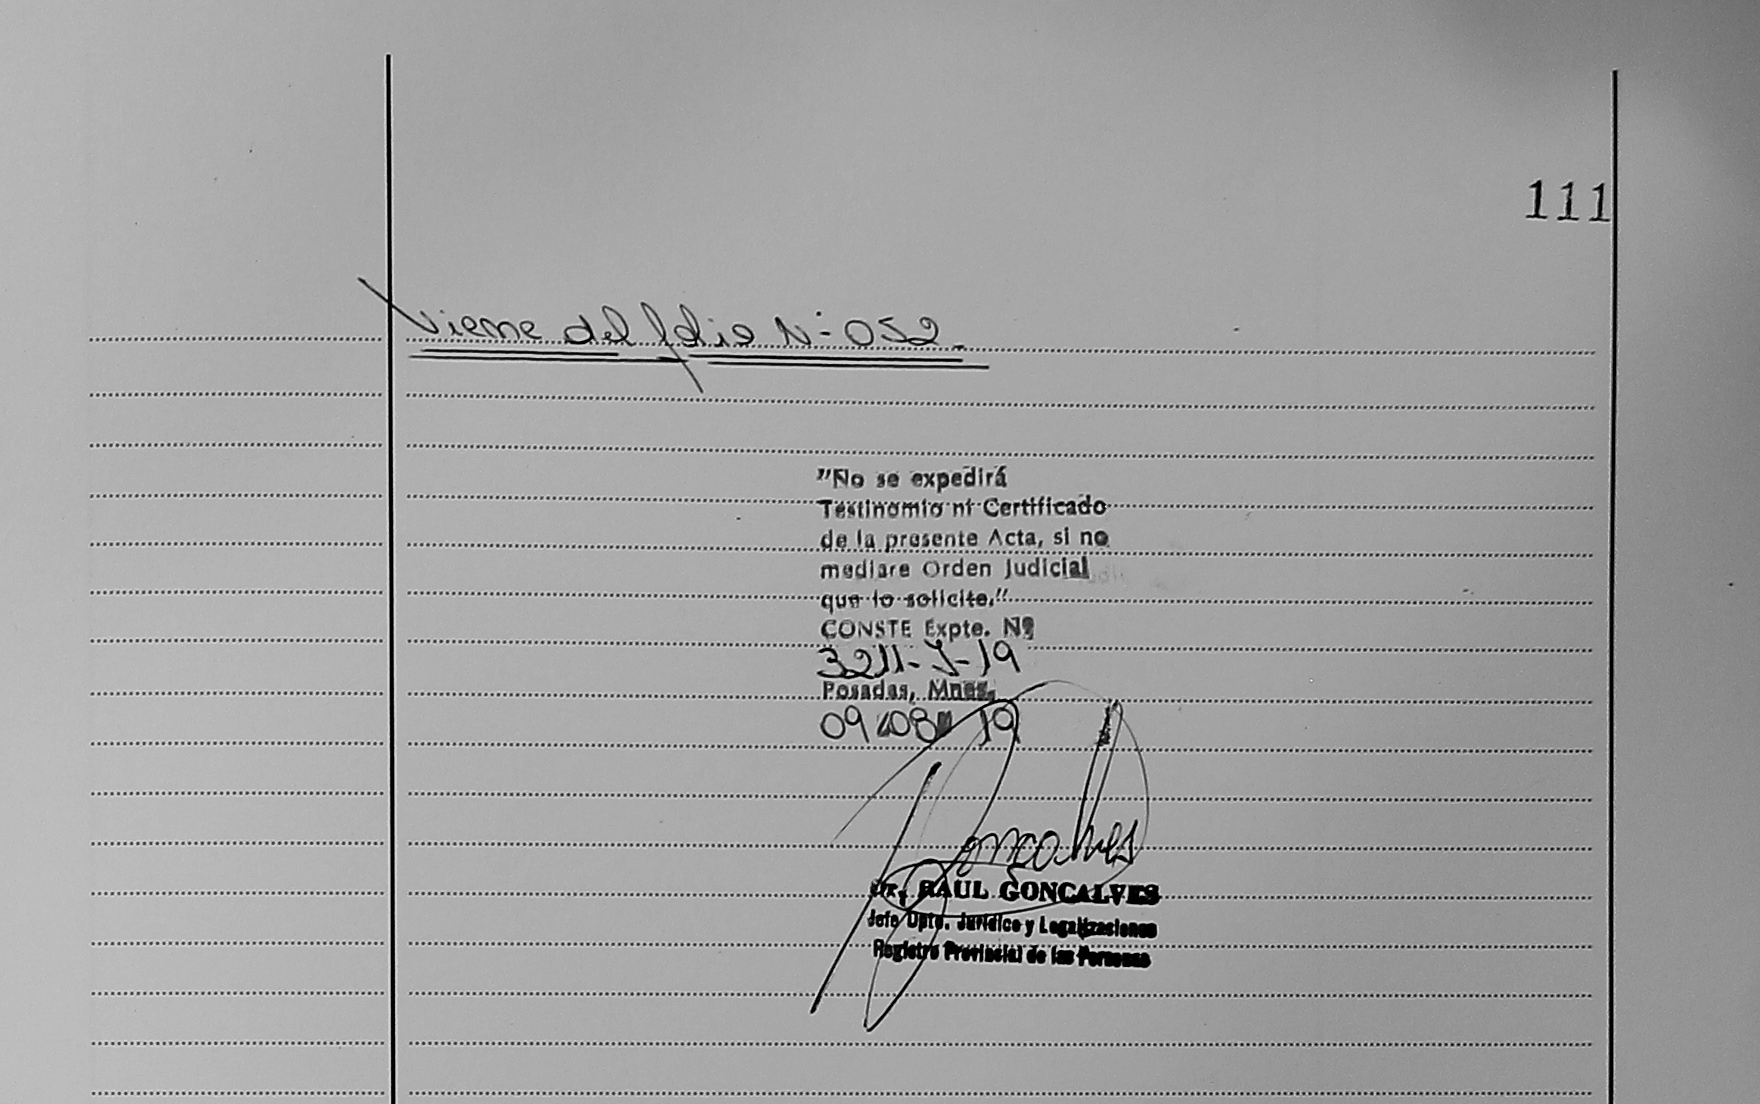 111
Viene del folio N°-052.
"No se expedirá
Testinomio ni Certificado
de la presente Acta, si no
mediare Orden Judicial
que lo solicite."
CONSTE Expte. Nº
3211-J-19
Posadas, Mnes.
09 08 19
Goncalves
Dr. RAUL GONCALVES
Jefe Dpto. Jurídico y Legalizaciones
Registro Provincial de las Personas